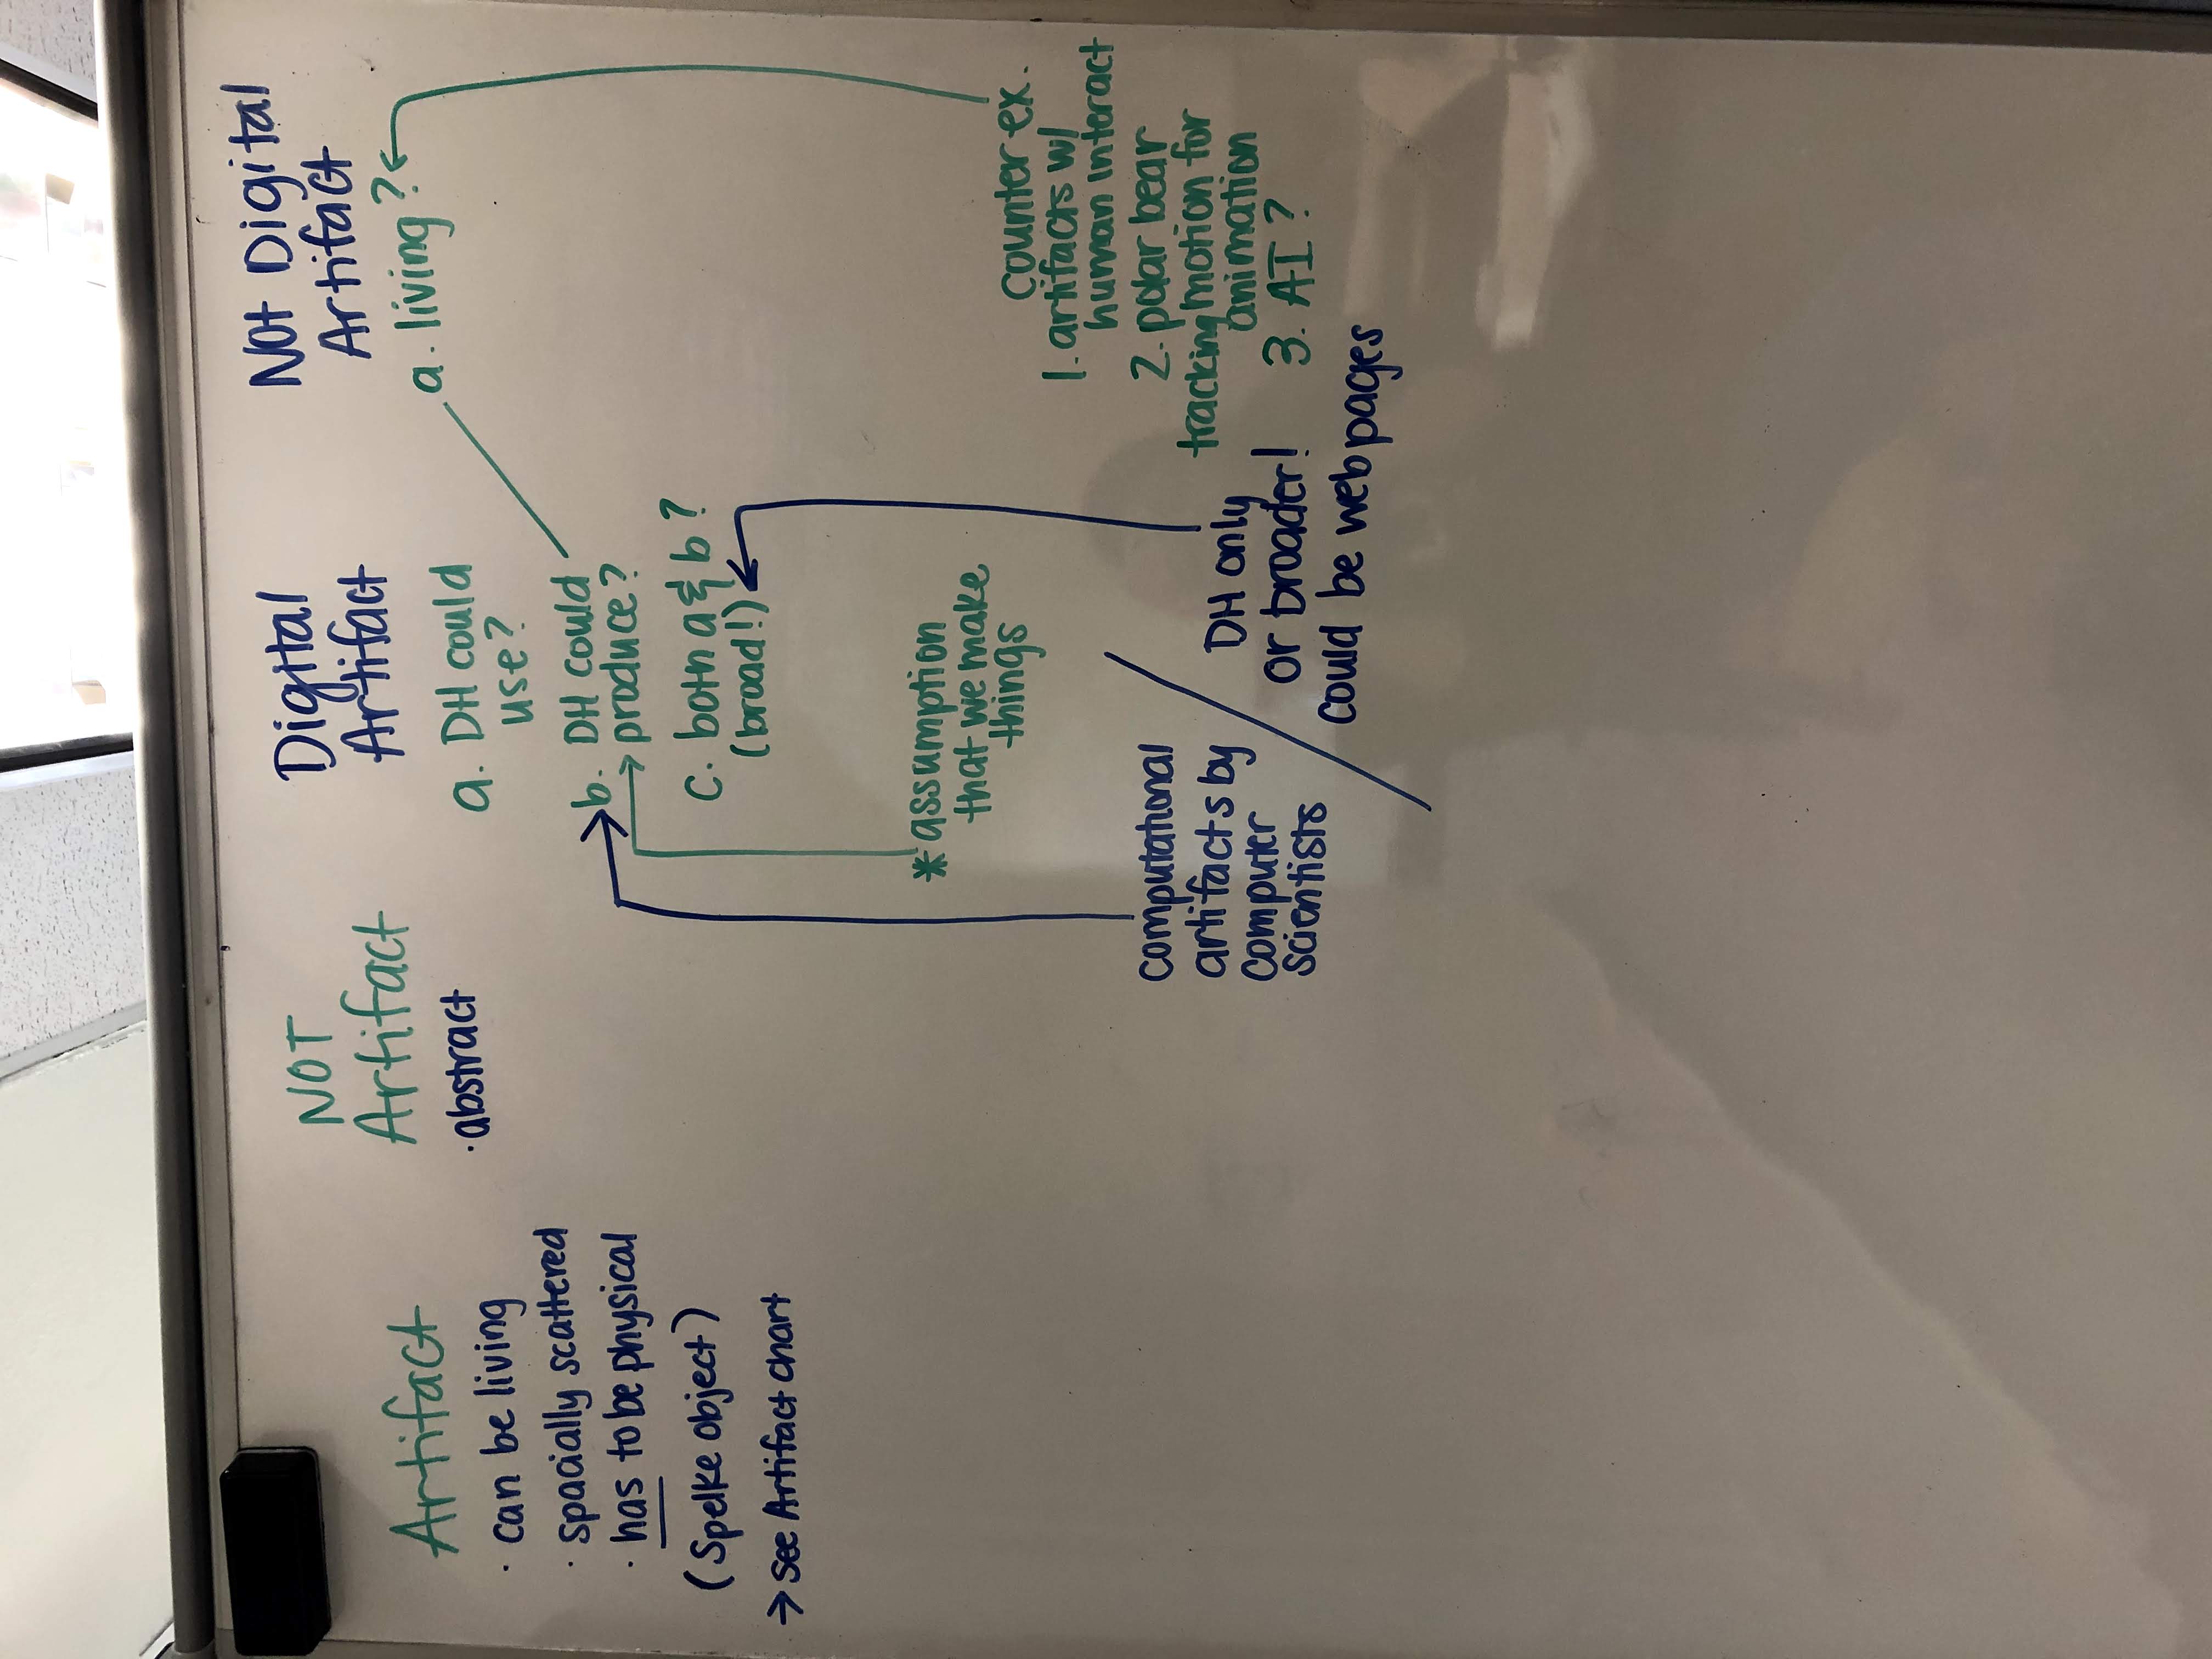 Artifact
· can be living
· spacially scattered
· has to be physical
(Spelke object)
→ see Artifact chart
NOT
Artifact
· abstract
Digital
Artifact
a. DH could
use?
b. DH could
produce?
c. both a & b?
(broad!)
* assumption
that we make
things
computational
artifacts by
computer
scientists
DH only
or broader!
could be webpages
Not Digital
Artifact
a. living?
counter ex.
1. artifacts w/
human interact
2. polar bear
tracking motion for
animation
3. AI?